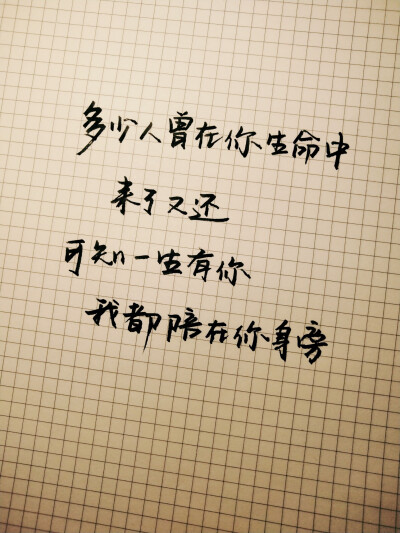 多少人曾在你生命中
来了又还
可知n一生有你
我都陪在你身旁